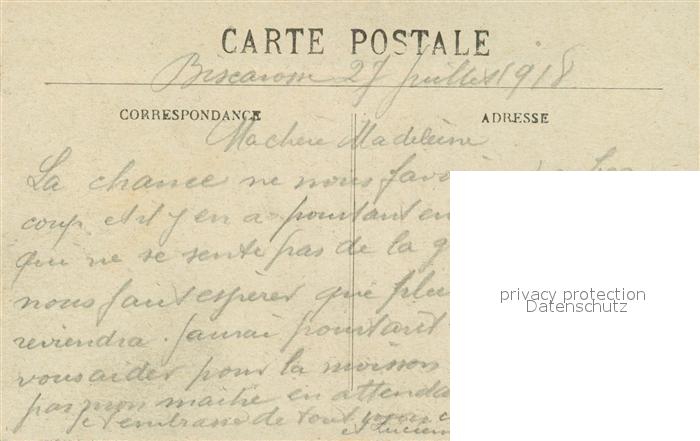 CARTE POSTALE
Biscarosse 27 Juillet 1918
CORRESPONDANCE
ADRESSE
Ma chere Madeleine
La chance ne nous favo
coup et il y en a pourtant en
qui ne se sente pas de la g
nous faut espérer que plu
reviendra. J'aurai pourtant
vous aider pour la moisson
pas mon maitre en attenda
je t'embrasse de tout
et Lucien
privacy protection
Datenschutz